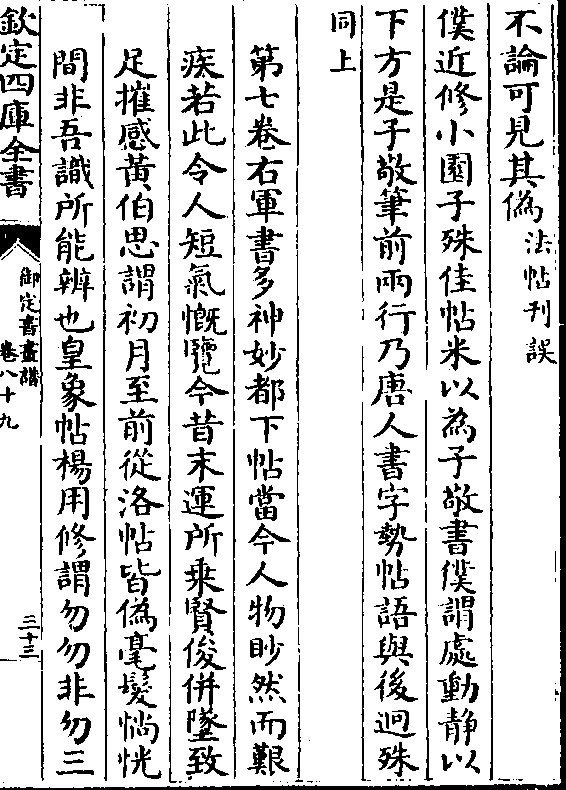 不論可見其偽法帖刋誤
僕近修小園子殊佳帖米以為子敬書僕謂處動静以
下方是子敬筆前兩行乃唐人書字勢帖語與後迥殊
同上
第七卷右軍書多神妙都下帖當今人物眇然而艱
疾若此令人短氣慨覽今昔末運所乗賢俊併墜致
足摧感黄伯思謂初月至前從洛帖皆偽毫髮惝恍
間非吾識所能辨也皇象帖楊用修謂勿勿非勿三
欽定四庫全書
御定書畫譜
卷八十九
三十三